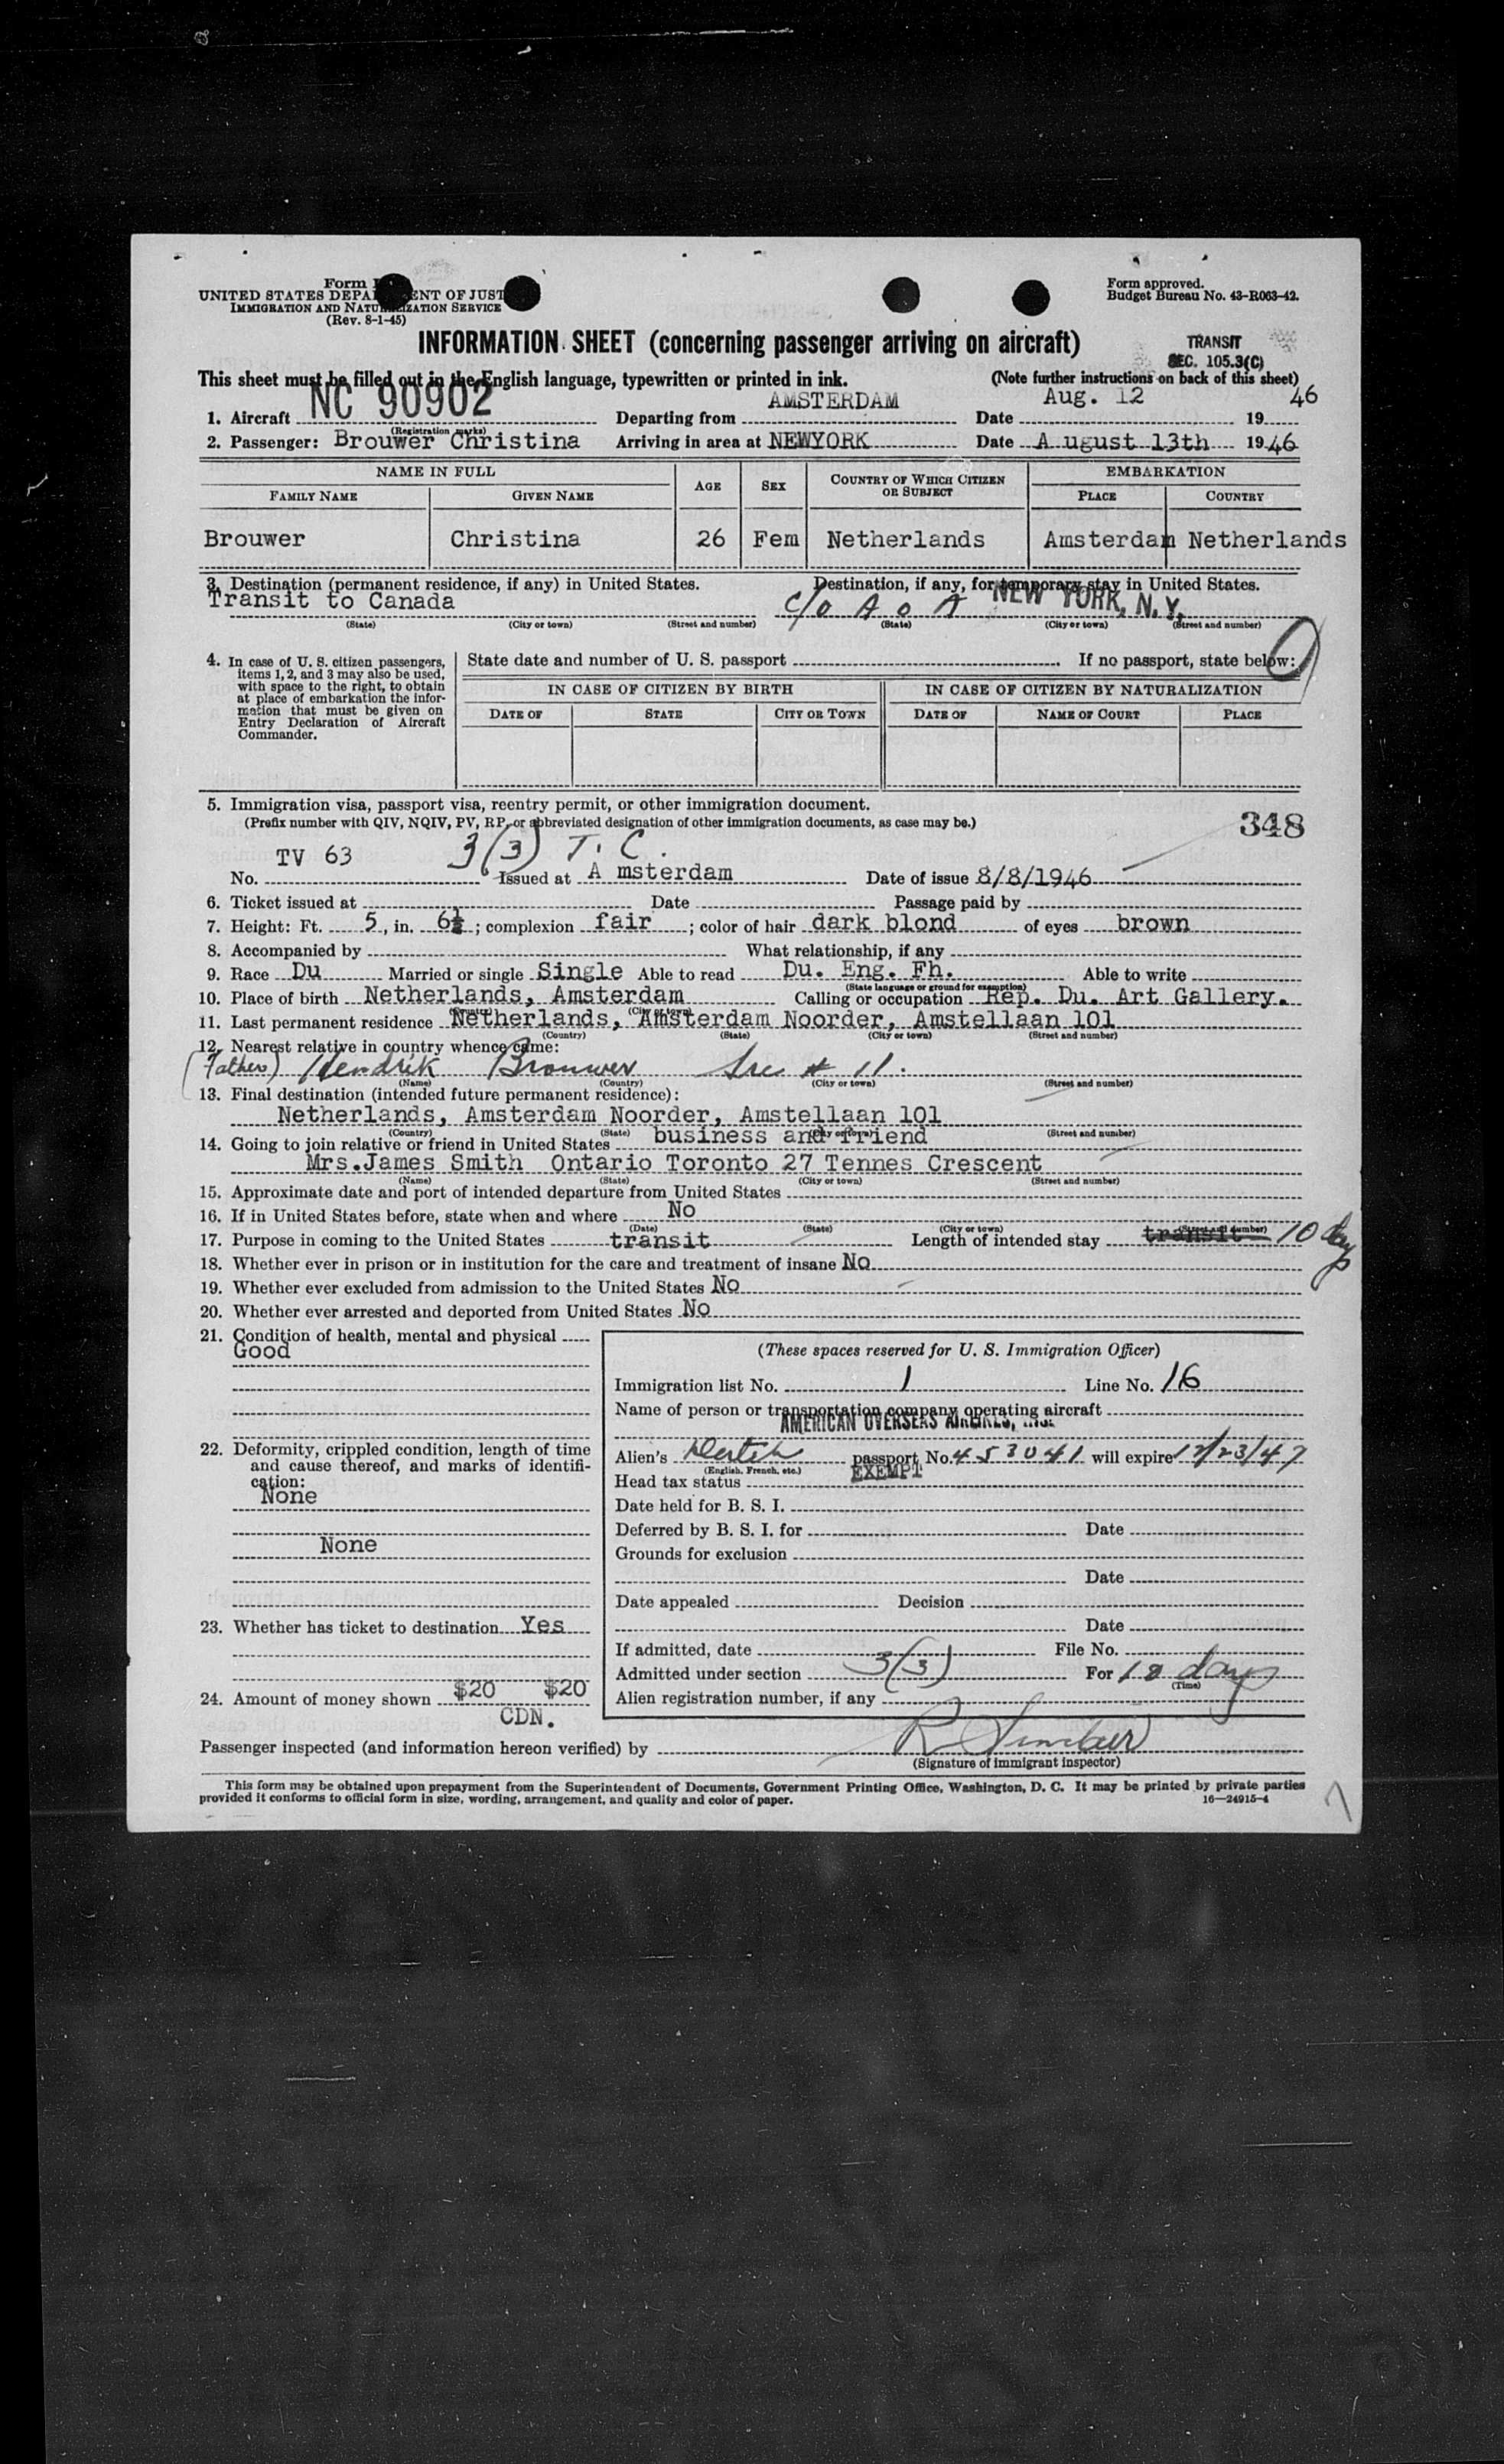 Form
UNITED STATES DEPA ENT OF JUST
IMMIGRATION AND NATURALIZATION SERVICE
(Rev. 8-1-45)
Form approved.
Budget Bureau No. 43-R063-42.
INFORMATION SHEET (concerning passenger arriving on aircraft)
TRANSIT
SEC. 105.3(C)
This sheet must be filled out in the English language, typewritten or printed in ink. (Note further instructions on back of this sheet)
1. Aircraft NC 90902 Departing from AMSTERDAM Date Aug. 12 19 46
(Registration marks)
2. Passenger: Brouwer Christina Arriving in area at NEWYORK Date A ugust 13th 19 46
NAME IN FULL AGE SEX COUNTRY OF WHICH CITIZEN OR SUBJECT EMBARKATION
FAMILY NAME GIVEN NAME PLACE COUNTRY
Brouwer Christina 26 Fem Netherlands Amsterdam Netherlands
3. Destination (permanent residence, if any) in United States. Destination, if any, for temporary stay in United States.
Transit to Canada c/o A o A NEW YORK, N.Y.
(State) (City or town) (Street and number) (State) (City or town) (Street and number)
4. In case of U. S. citizen passengers, items 1, 2, and 3 may also be used, with space to the right, to obtain at place of embarkation the information that must be given on Entry Declaration of Aircraft Commander.
State date and number of U. S. passport If no passport, state below:
IN CASE OF CITIZEN BY BIRTH IN CASE OF CITIZEN BY NATURALIZATION
DATE OF STATE CITY OR TOWN DATE OF NAME OF COURT PLACE
5. Immigration visa, passport visa, reentry permit, or other immigration document.
(Prefix number with QIV, NQIV, PV, RP, or abbreviated designation of other immigration documents, as case may be.)
348
TV 63 3(3) T. C.
No. Issued at A msterdam Date of issue 8/8/1946
6. Ticket issued at Date Passage paid by
7. Height: Ft. 5, in. 6½; complexion fair; color of hair dark blond of eyes brown
8. Accompanied by What relationship, if any
9. Race Du Married or single Single Able to read Du. Eng. Fh. Able to write
(State language or ground for exemption)
10. Place of birth Netherlands, Amsterdam Calling or occupation Rep. Du. Art Gallery.
(Country) (City or town)
11. Last permanent residence Netherlands, Amsterdam Noorder, Amstellaan 101
(Country) (State) (City or town) (Street and number)
12. Nearest relative in country whence came:
(Father) Hendrik Brouwer See # 11.
(Name) (Country) (City or town) (Street and number)
13. Final destination (intended future permanent residence):
Netherlands, Amsterdam Noorder, Amstellaan 101
(Country) (State) (City or town) (Street and number)
14. Going to join relative or friend in United States business and friend
Mrs.James Smith Ontario Toronto 27 Tennes Crescent
(Name) (State) (City or town) (Street and number)
15. Approximate date and port of intended departure from United States
16. If in United States before, state when and where No
(Date) (State) (City or town) (Street and number)
17. Purpose in coming to the United States transit Length of intended stay transit 10 days
18. Whether ever in prison or in institution for the care and treatment of insane No
19. Whether ever excluded from admission to the United States No
20. Whether ever arrested and deported from United States No
21. Condition of health, mental and physical
Good
22. Deformity, crippled condition, length of time and cause thereof, and marks of identification:
None
None
23. Whether has ticket to destination Yes
24. Amount of money shown $20 $20
CDN.
(These spaces reserved for U. S. Immigration Officer)
Immigration list No. 1 Line No. 16
Name of person or transportation company operating aircraft
AMERICAN OVERSEAS AIRLINES, INC.
Alien's Dutch passport No. 453041 will expire 12/23/47
(English, French, etc.)
Head tax status EXEMPT
Date held for B. S. I.
Deferred by B. S. I. for Date
Grounds for exclusion
Date
Date appealed Decision
Date
If admitted, date File No.
Admitted under section 3(3) For 10 days
(Time)
Alien registration number, if any
Passenger inspected (and information hereon verified) by
(Signature of immigrant inspector)
This form may be obtained upon prepayment from the Superintendent of Documents, Government Printing Office, Washington, D. C. It may be printed by private parties
provided it conforms to official form in size, wording, arrangement, and quality and color of paper. 16—24915-4